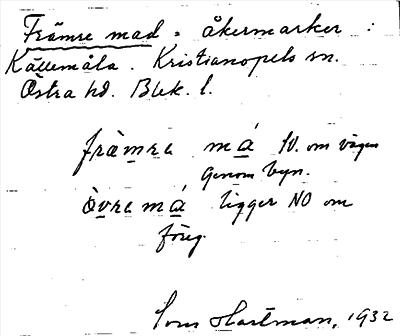 Främre mad = åkermarker :
Källemåla. Kristianopels sn.
Östra hd. Blek. l.
fràmre má SV. om vägen
genom byn.
òvre má ligger NO om
föreg.
Sven Hartman, 1932